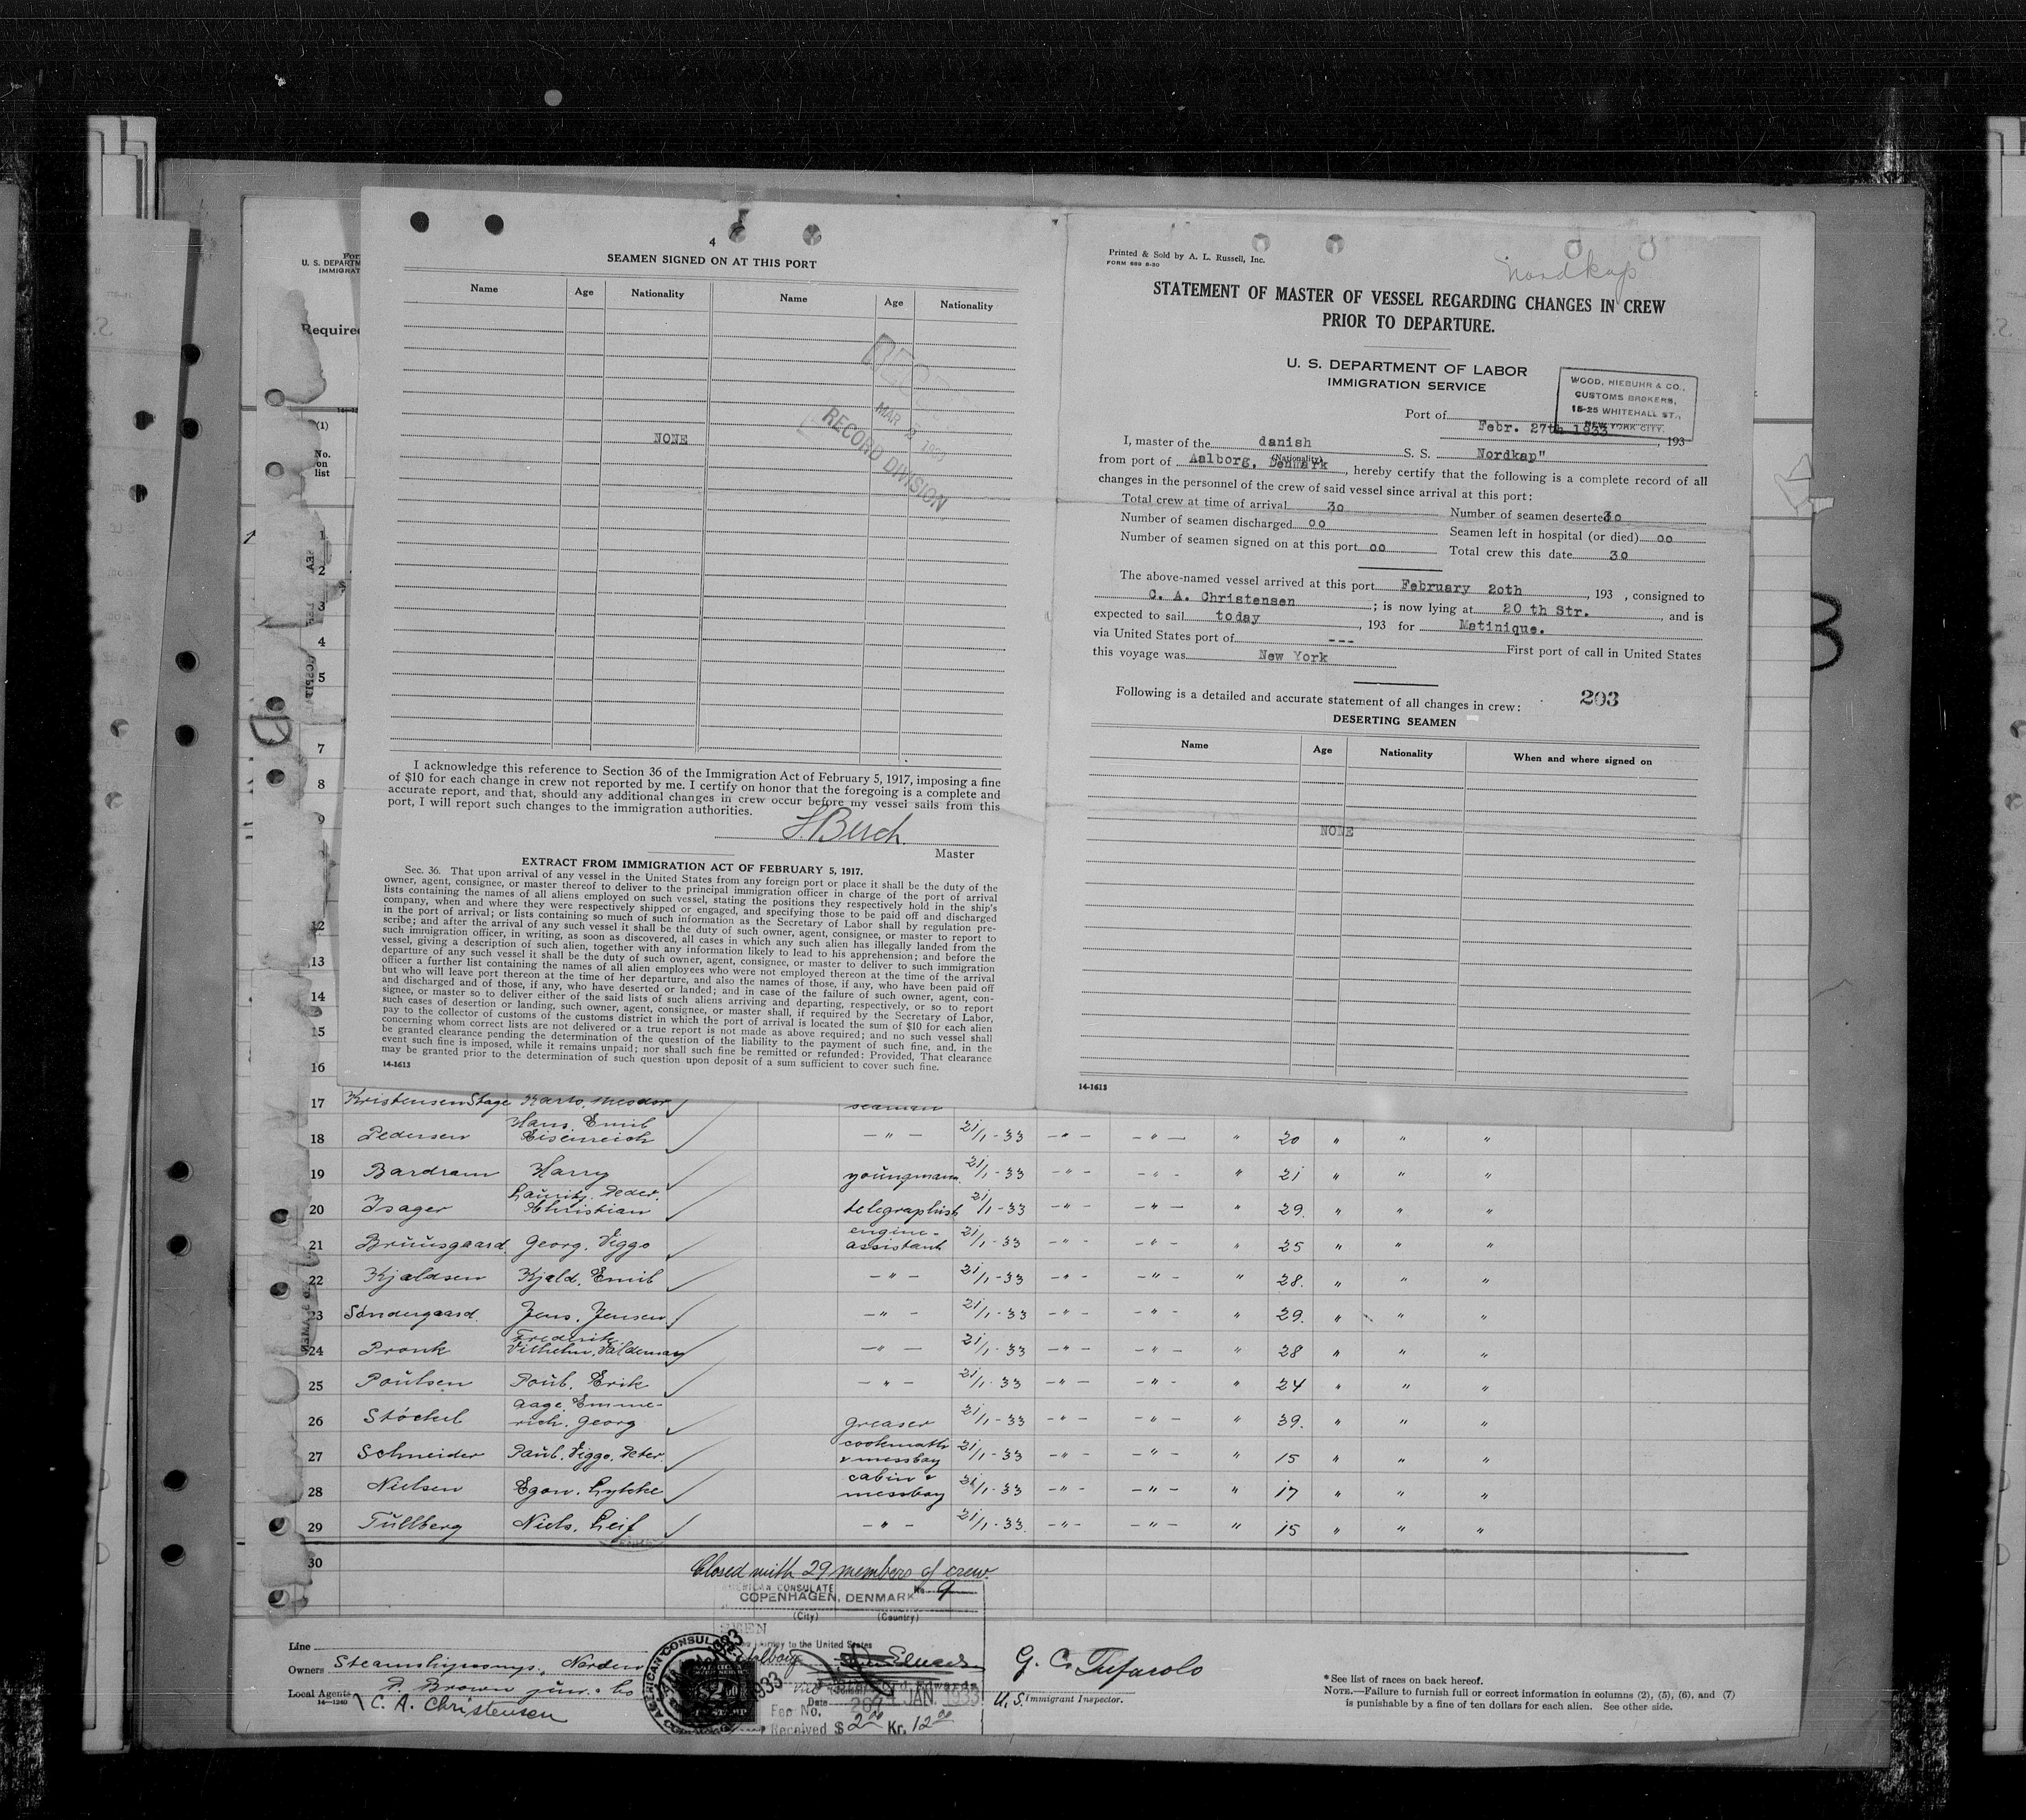 4
SEAMEN SIGNED ON AT THIS PORT
Name Age Nationality Name Age Nationality
NONE
MAR 2
RECORD DIVISION
I acknowledge this reference to Section 36 of the Immigration Act of February 5, 1917, imposing a fine
of $10 for each change in crew not reported by me. I certify on honor that the foregoing is a complete and
accurate report, and that, should any additional changes in crew occur before my vessel sails from this
port, I will report such changes to the immigration authorities.
Master
EXTRACT FROM IMMIGRATION ACT OF FEBRUARY 5, 1917.
Sec. 36. That upon arrival of any vessel in the United States from any foreign port or place it shall be the duty of the
owner, agent, consignee, or master thereof to deliver to the principal immigration officer in charge of the port of arrival
lists containing the names of all aliens employed on such vessel, stating the positions they respectively hold in the ship's
company, when and where they were respectively shipped or engaged, and specifying those to be paid off and discharged
in the port of arrival; or lists containing so much of such information as the Secretary of Labor shall by regulation pre-
scribe; and after the arrival of any such vessel it shall be the duty of such owner, agent, consignee, or master to report to
such immigration officer, in writing, as soon as discovered, all cases in which any such alien has illegally landed from the
vessel, giving a description of such alien, together with any information likely to lead to his apprehension; and before the
departure of any such vessel it shall be the duty of such owner, agent, consignee, or master to deliver to such immigration
officer a further list containing the names of all alien employees who were not employed thereon at the time of the arrival
but who will leave port thereon at the time of her departure, and also the names of those, if any, who have been paid off
and discharged and of those, if any, who have deserted or landed; and in case of the failure of such owner, agent, con-
signee, or master so to deliver either of the said lists of such aliens arriving and departing, respectively, or so to report
such cases of desertion or landing, such owner, agent, consignee, or master shall, if required by the Secretary of Labor,
pay to the collector of customs of the customs district in which the port of arrival is located the sum of $10 for each alien
concerning whom correct lists are not delivered or a true report is not made as above required; and no such vessel shall
be granted clearance pending the determination of the question of the liability to the payment of such fine, and, in the
event such fine is imposed, while it remains unpaid; nor shall such fine be remitted or refunded: Provided, That clearance
may be granted prior to the determination of such question upon deposit of a sum sufficient to cover such fine.
14-1613
Printed & Sold by A. L. Russell, Inc.
FORM 689 8-30
Nordkap
STATEMENT OF MASTER OF VESSEL REGARDING CHANGES IN CREW
PRIOR TO DEPARTURE.
U. S. DEPARTMENT OF LABOR
IMMIGRATION SERVICE
WOOD, NIEBUHR & CO.,
CUSTOMS BROKERS,
15-25 WHITEHALL ST.,
NEW YORK CITY.
Port of
Febr. 27th 1933 , 193
I, master of the danish S. S. Nordkap"
(Nationality)
from port of Aalborg, Denmark , hereby certify that the following is a complete record of all
changes in the personnel of the crew of said vessel since arrival at this port:
Total crew at time of arrival 30 Number of seamen deserted 30
Number of seamen discharged 00 Seamen left in hospital (or died) 00
Number of seamen signed on at this port 00 Total crew this date 30
The above-named vessel arrived at this port February 20th , 193 , consigned to
C. A. Christensen ; is now lying at 20 th Str. , and is
expected to sail today , 193 for Matinique.
via United States port of --- First port of call in United States
this voyage was New York
Following is a detailed and accurate statement of all changes in crew: 203
DESERTING SEAMEN
Name Age Nationality When and where signed on
NONE
14-1613
U. S. DEPARTM
IMMIGRAT
Required
(1)
No. on list
1
2
3
4
5
7
8
9
12
13
14
15
16
17 Kristensen Stage Karlo, Theodor seaman
18 Pedersen Hans, Emil Eisenreich — " — 21/1-33 — " — — " — " 20 " " "
19 Bardram Harry youngman 21/1-33 — " — — " — " 21 " " "
20 Isager Lauritz, Peder, Christian telegraphist 21/1-33 — " — — " — " 29. " " "
21 Bruusgaard Georg, Viggo engine-assistant 21/1-33 — " — — " — " 25 " " "
22 Kjaldsen Kjeld, Emil — " — 21/1-33 — " — — " — " 28. " " "
23 Søndergaard Jens, Jensen — " — 21/1-33 — " — — " — " 29. " " "
24 Pronk Frederik Vilhelm, Valdemar — " — 21/1-33 — " — — " — " 28 " " "
25 Poulsen Poul, Erik — " — 21/1-33 — " — — " — " 24 " " "
26 Støckel Aage, Emmerich, Georg greaser 21/1-33 — " — — " — " 39. " " "
27 Schneider Paul, Viggo, Peter cookmath & messboy 21/1-33 — " — — " — " 15 " " "
28 Nielsen Egon, Lykke cabin & messboy 21/1-33 — " — — " — " 17 " " "
29 Tullberg Niels, Leif — " — 21/1-33 — " — — " — " 15 " " "
30
Closed with 29 members of crew.
AMERICAN CONSULATE
COPENHAGEN, DENMARK No. 9
(City) (Country)
SEEN
journey to the United States
Aalborg
Date JAN. 1933
Fee No. 267
Received $ 2.00 Kr. 12.00
Line
Owners Steamshipcomp. Norden
P. Brown jun. & Co
Local Agents C. A. Christensen
14-1240
G. C. Tufarolo
U. S. Immigrant Inspector.
*See list of races on back hereof.
NOTE.—Failure to furnish full or correct information in columns (2), (5), (6), and (7)
is punishable by a fine of ten dollars for each alien. See other side.